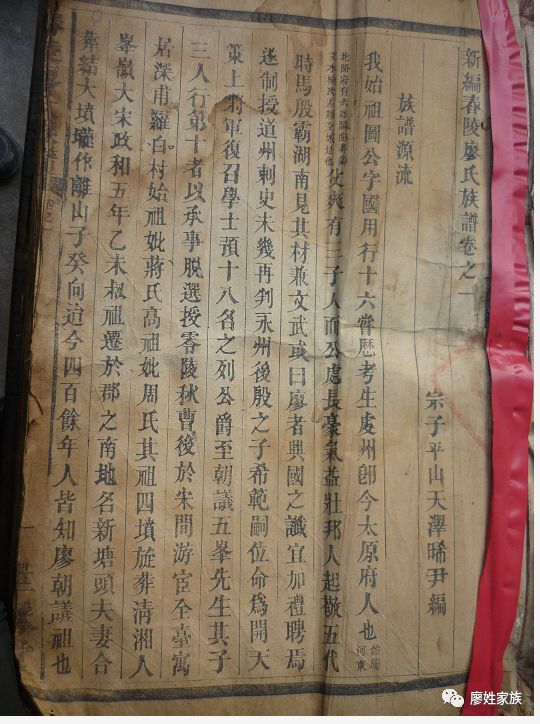 新編舂陵廖氏族譜卷之一
宗子平山天澤晞尹編
族譜源流
我始祖圖公字國用行十六嘗歷考生處州卽今太原府人也
父爽有二子人而公處長豪氣益壯邦人起敬五代
時馬殷霸湖南見其材兼文武或曰廖者興國之讖宜加禮聘焉
遂制授道州刺史未幾再判永州後殷之子希範嗣位命爲開天
策上將軍復召學士預十八名之列公爵至朝議五峯先生其子
三人行第十者以承事脫選授零陵秋曹後於宋間游宦全臺寓
居深甫羅白村始祖妣蔣氏高祖妣周氏其祖四墳旋葬淸湘人
峯嶺大宋政和五年乙未叔祖遷於郡之南地名新塘頭夫妻合
葬結大墳瑩作離山子癸向迨今四百餘年人皆知廖朝議祖也
廖姓家族